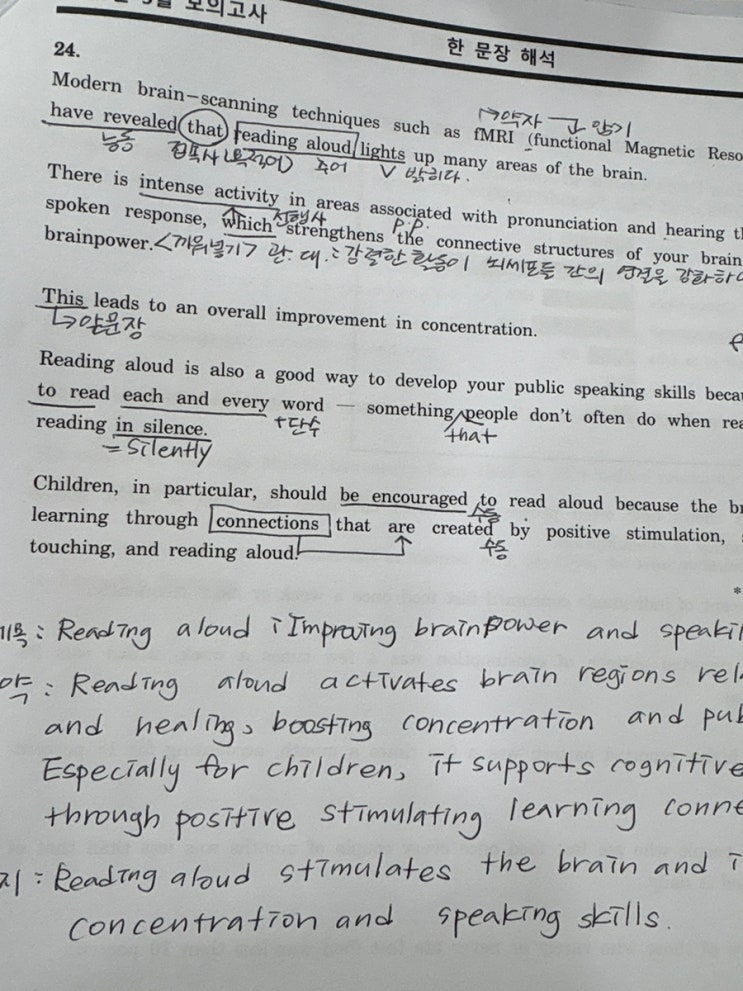 모의고사
한 문장 해석
24.
Modern brain-scanning techniques such as fMRI (functional Magnetic Reso
↳약자 암기
have revealed that reading aloud lights up many areas of the brain.
능동 접속사 (목적어) 주어 V 밝히다.
There is intense activity in areas associated with pronunciation and hearing t
선행사 P.P.
spoken response, which strengthens the connective structures of your brain
brainpower. <끼워넣기> 관.대.: 강렬한 활동이 뇌세포들 간의 연결을 강화하
This leads to an overall improvement in concentration.
↳앞문장
Reading aloud is also a good way to develop your public speaking skills beca
to read each and every word — something people don't often do when rea
+단수 that
reading in silence.
= silently
Children, in particular, should be encouraged to read aloud because the br
수동
learning through connections that are created by positive stimulation,
수동
touching, and reading aloud.
*
: Reading aloud : Improving brainpower and speaki
약 : Reading aloud activates brain regions rel
and healing, boosting concentration and pub
Especially for children, it supports cognitive
through positive stimulating learning conne
지 : Reading aloud stimulates the brain and i
concentration and speaking skills.